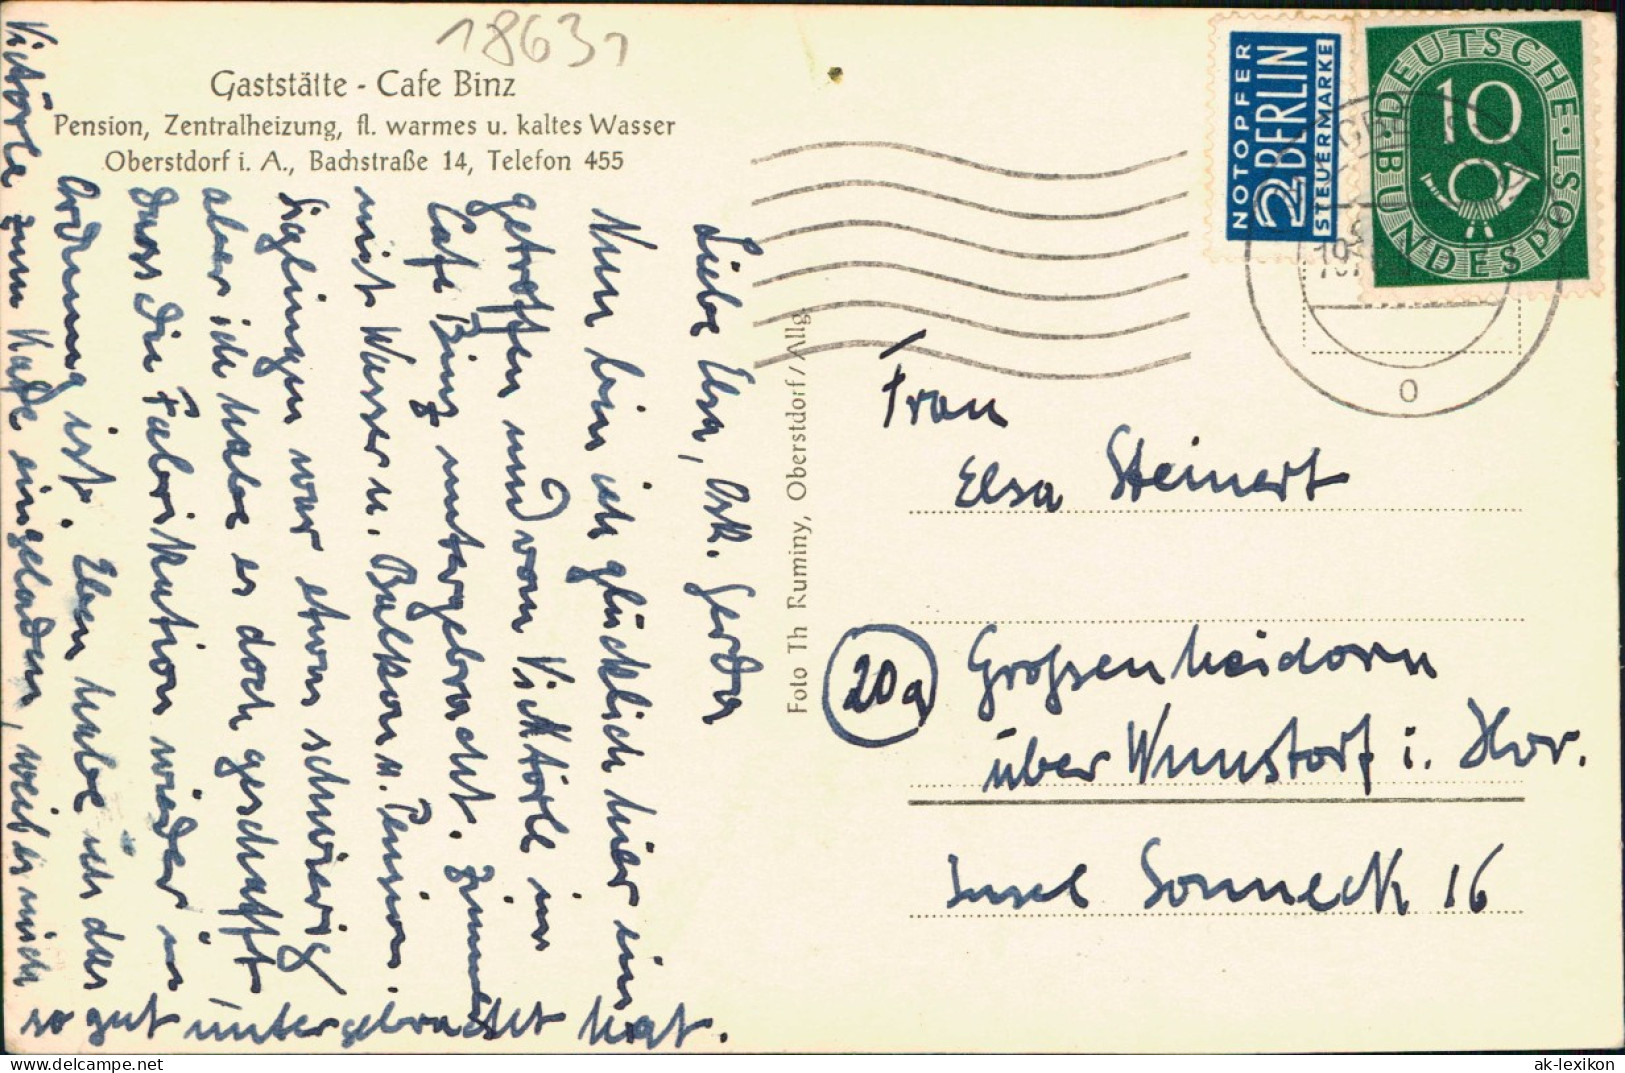 18631
Gaststätte - Cafe Binz
Pension, Zentralheizung, fl. warmes u. kaltes Wasser
Oberstdorf i. A., Bachstraße 14, Telefon 455
Liebe Elsa, Gerda
Nun bin ich glücklich hier ein
getroffen und vom Vicktörle im
Cafe Binz untergebracht. Zimmer
mit Wasser u. Balkon u. Pension.
Siglingen war etwas schwierig
aber ich habe es doch geschafft,
dass die Fabrikation wieder in
Ordnung ist. Eben habe ich das
Vicktörle zum Kafe eingeladen, weil es mich
so gut untergebracht hat.
Foto Th Ruminy, Oberstdorf/Allg.
NOTOPFER
2 BERLIN
STEUERMARKE
DEUTSCHE BUNDESPOST
10
Frau
Elsa Steinert
20a
Großenheidorn
über Wunstorf i. Hvr.
Insel Sonneck 16
ak-lexikon